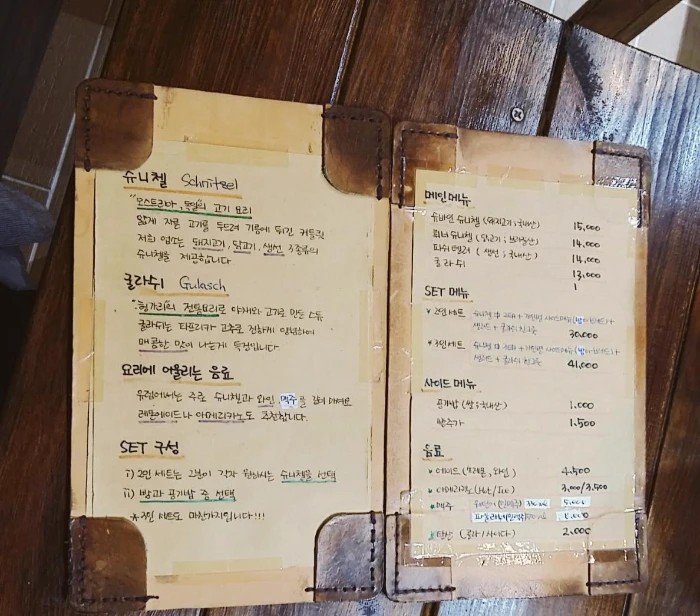 슈니첼 Schnitzel
"오스트리아, 독일의 고기 요리
얇게 저른 고기를 두드려 기름에 튀긴 커틀릿
저희 업소는 돼지고기, 닭고기, 생선 3종류의
슈니첼을 제공합니다
굴라쉬 Gulasch
"헝가리의 전통요리로 야채와 고기로 만든 스튜
굴라쉬는 파프리카 고추로 진하게 양념하여
매콤한 맛이 나는게 특징입니다
요리에 어울리는 음료
유럽에서는 주로 슈니첼과 와인 맥주를 곁들여 마셔요
레몬에이드나 아메리카노도 추천합니다.
SET 구성
i) 2인 세트는 2분이 각자 원하시는 슈니첼을 선택
ii) 빵과 공기밥 중 선택
* 3인 세트도 마찬가지입니다!!!
메인메뉴
슈바인 슈니첼 (돼지고기;국내산) 15,000
뷔너 슈니첼 (닭고기; 브라질산) 14,000
피쉬 텔러 (생선; 국내산) 14,000
굴라쉬 13,000
SET 메뉴
* 2인 세트 슈니첼 中 2개 +
샐러드 + 30,000
* 3인 세트 슈니첼 中 3개 +
샐러드 + 41,000
사이드 메뉴
공기밥 (쌀;국내산) 1,000
빵추가 1,500
음료
에이드 (레몬, 와인) 4,500
아메리카노 (Hot / Ice) 3,000/3,500
맥주 5,000
탄산 (콜라 / 사이다) 2,000